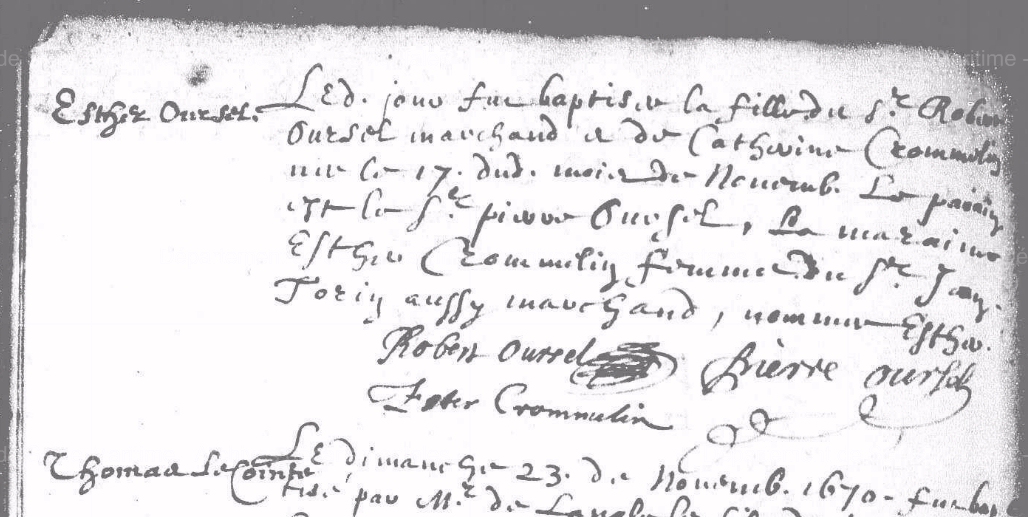 Esther Oursel. Led. jour fut baptisée la fille du Sr. Robert
Oursel marchand & de Catherine Crommelin
née le 17. dud. mois de Novemb. Le parain
est le Sr. pierre Oursel, La maraine
Esther Crommelin femme du Sr. Jan
Torin aussy marchand, nommée Esther.
Robert Oursel Pierre oursel
Ester Crommelin
Thomas Le Cointe Le dimanche 23. de Novemb. 1670. fut bap
tisé par Mr. de